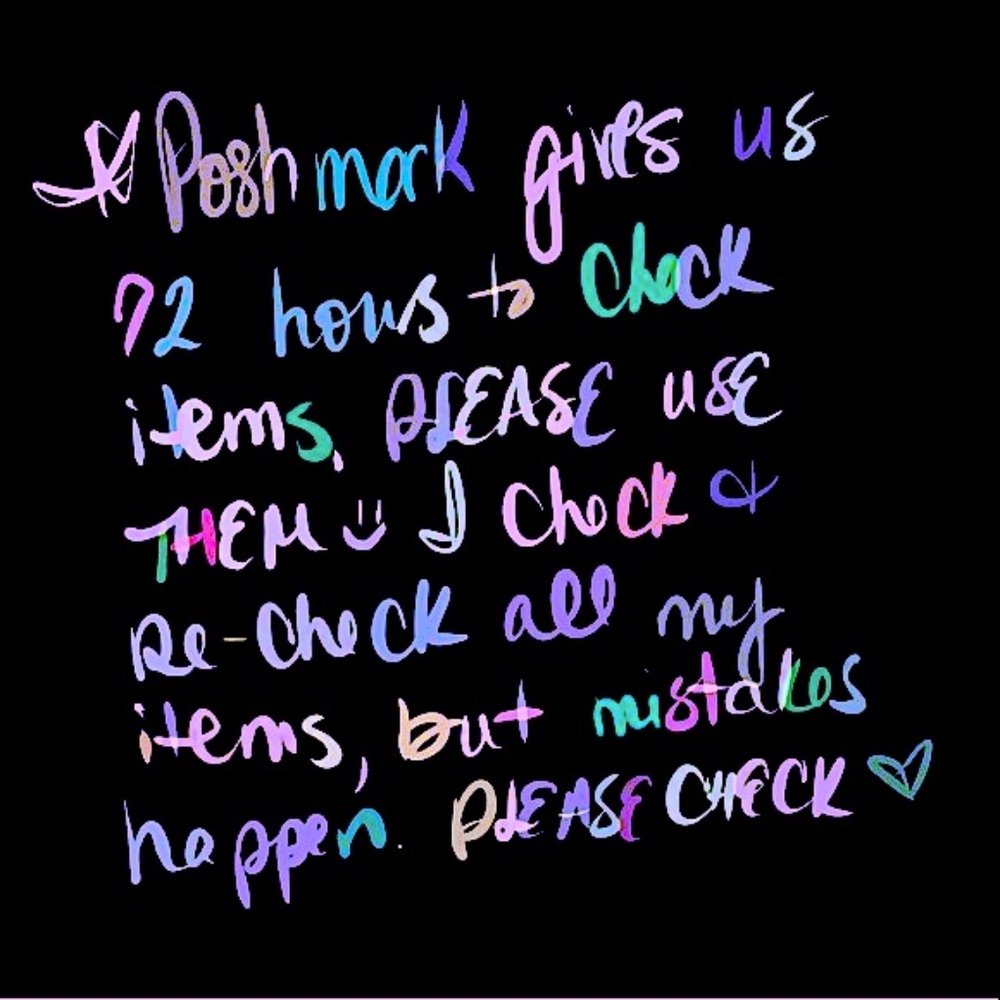 Poshmark gives us
72 hours to check
items, PLEASE USE
THEM I check &
Re-check all my
items, but mistakes
happen. PLEASE CHECK